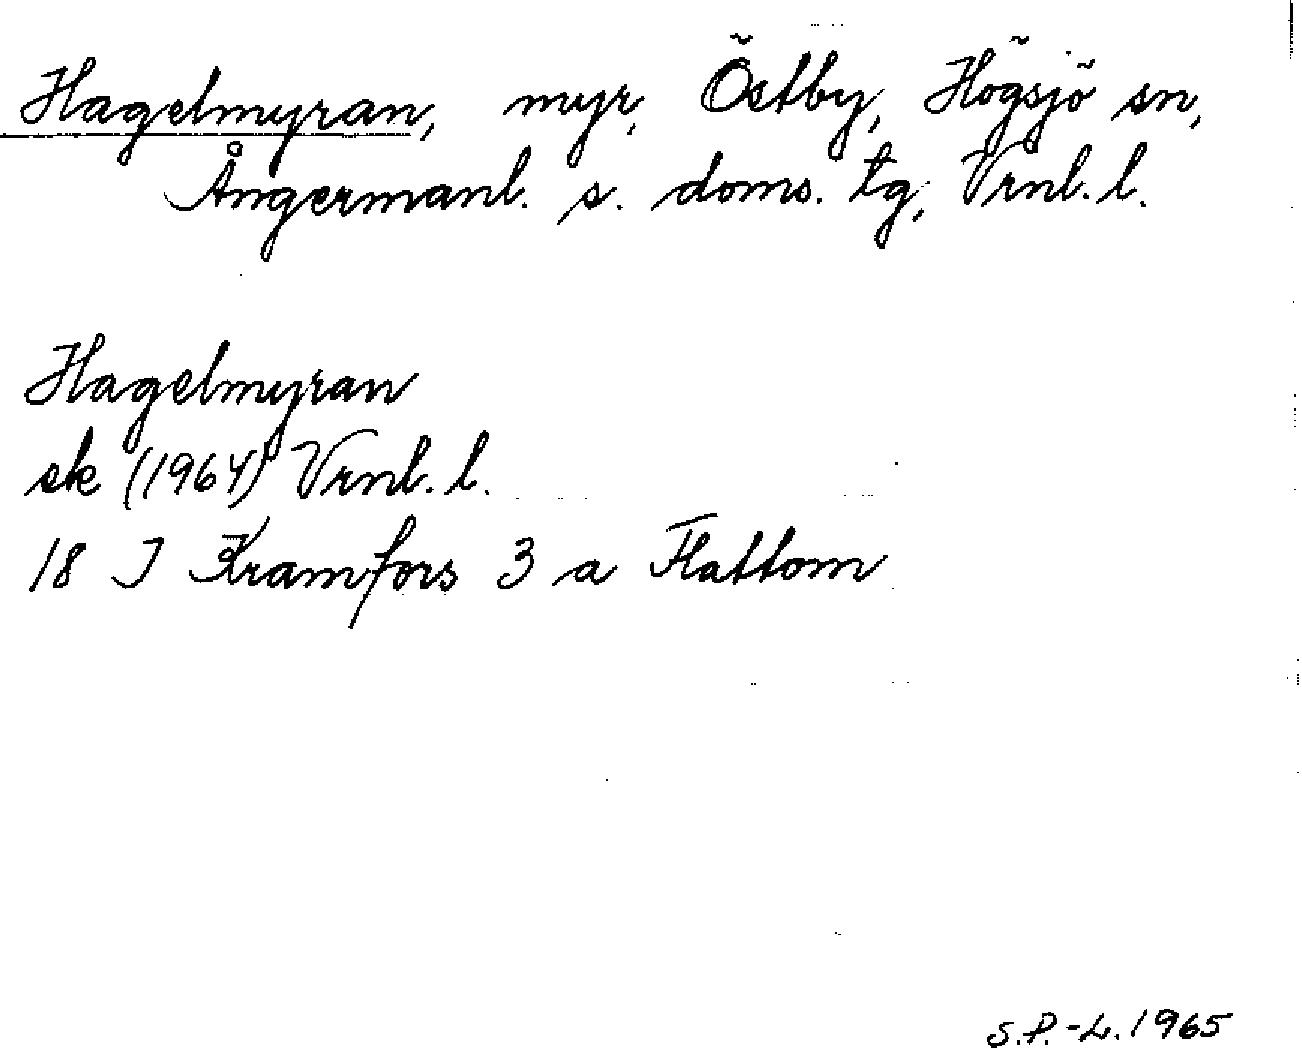 Hagelmyran, myr, Östby, Högsjö sn,
Ångermanl. s. doms. tg, Vrnl. l.
Hagelmyran
ek (1964) Vrnl. l.
18 J Kramfors 3 a Flattom
S.P.-L. 1965